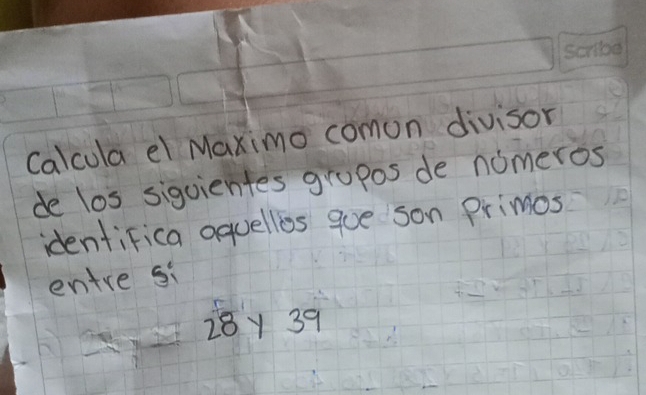 scribe
calcula el Maximo comun divisor
de los siguientes grupos de números
identifica aquellos que son Primos
entre si
28 y 39